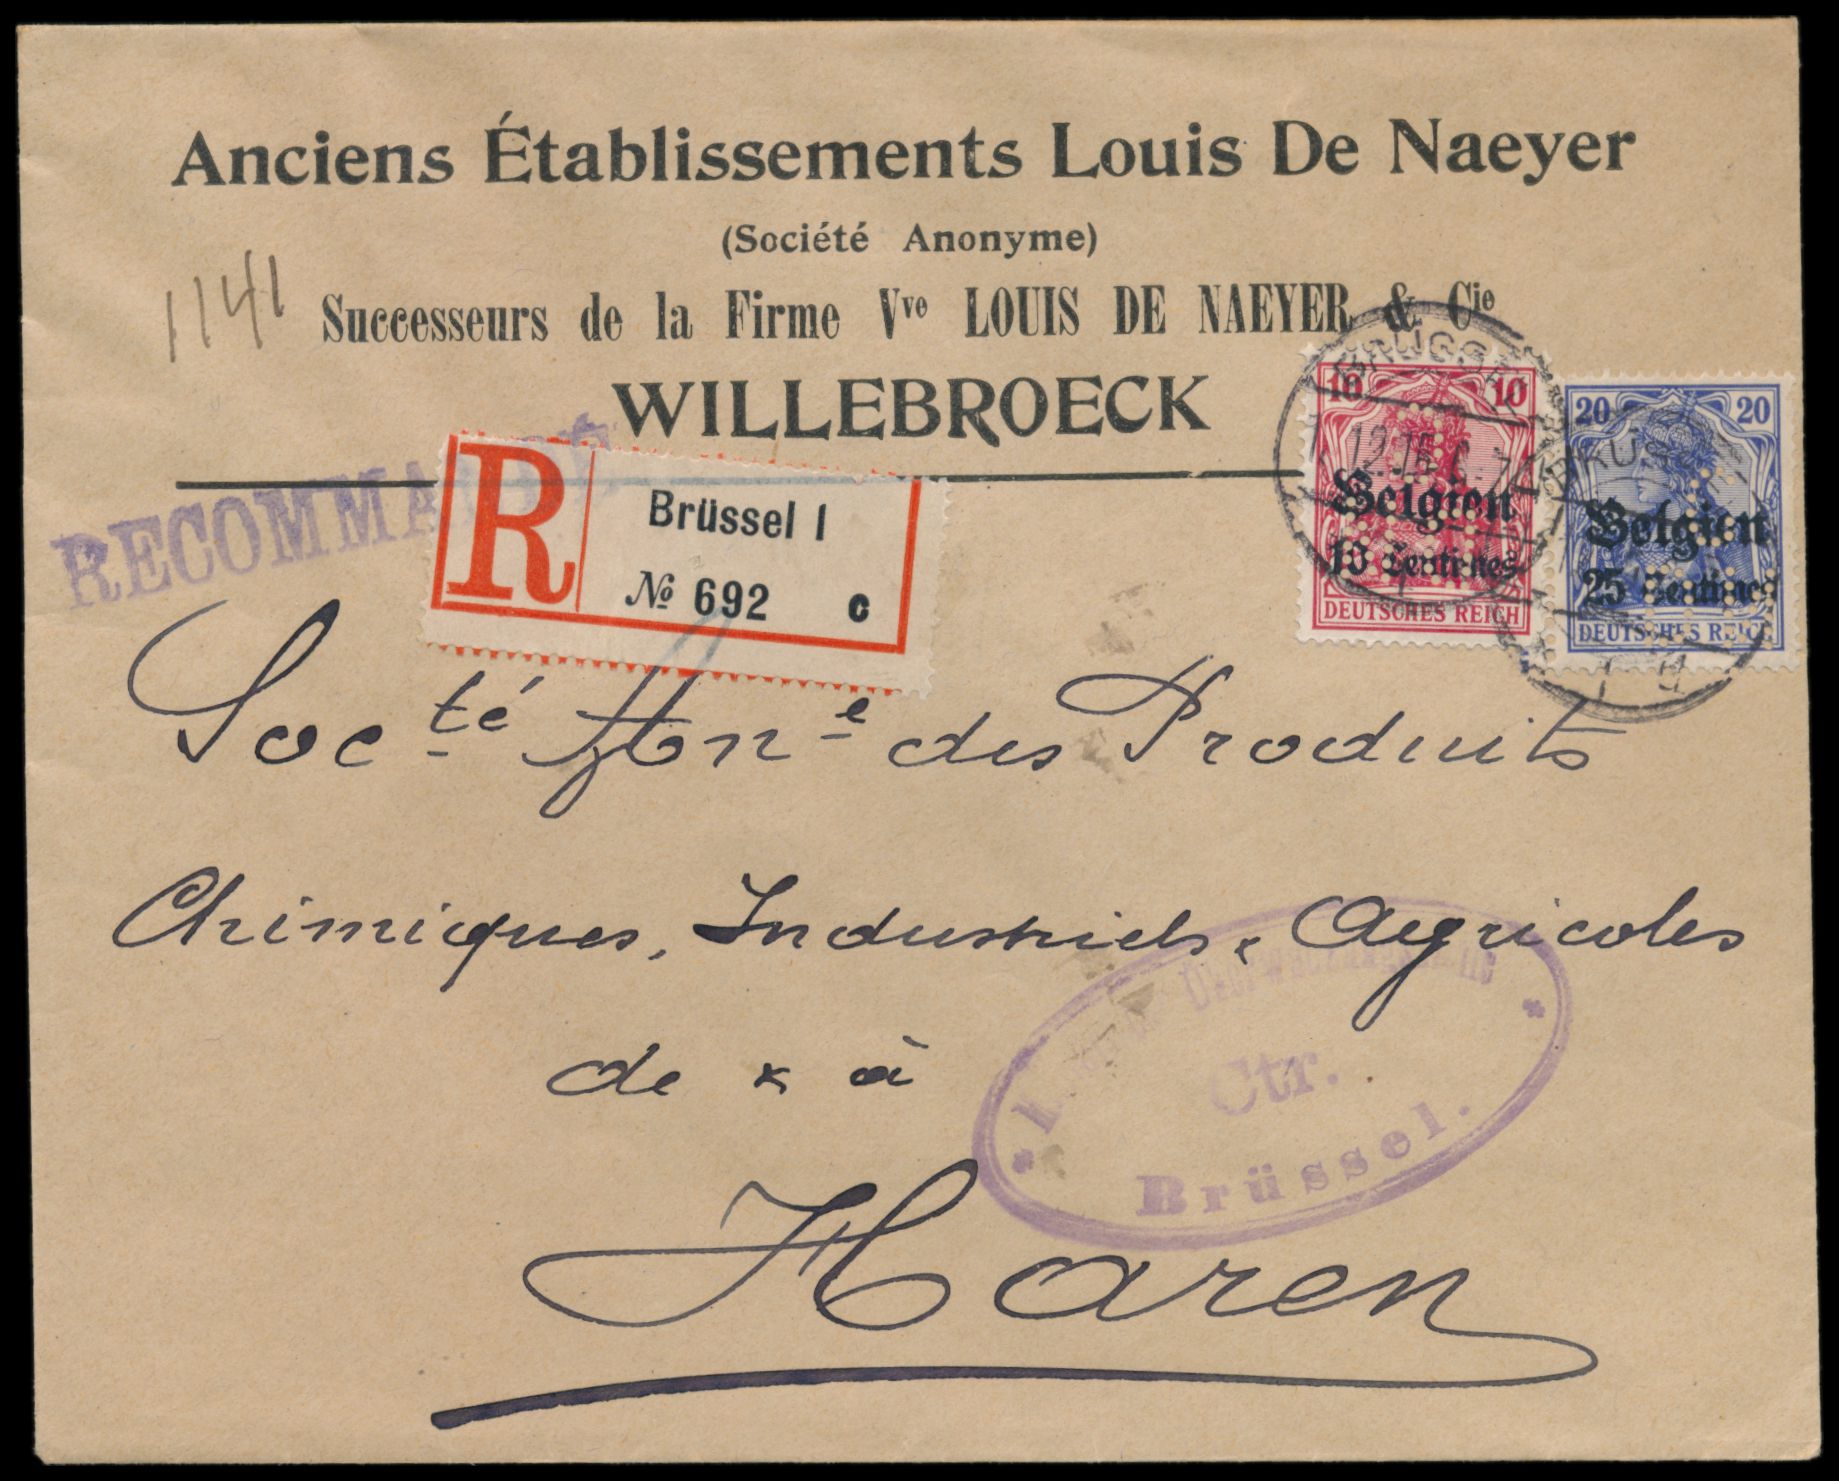 Anciens Établissements Louis De Naeyer
(Société Anonyme)
1141
Successeurs de la Firme Vve LOUIS DE NAEYER & Cie
WILLEBROECK
RECOMMA
R
Brüssel I
No 692 c
10 10
Belgien
10 Centimes
DEUTSCHES REICH
20 20
Belgien
25 Centimes
DEUTSCHES REICH
Socté Anne des Produits
Chimiques, Industriels, Agricoles
de x à
Haren
Ctr.
Brüssel.